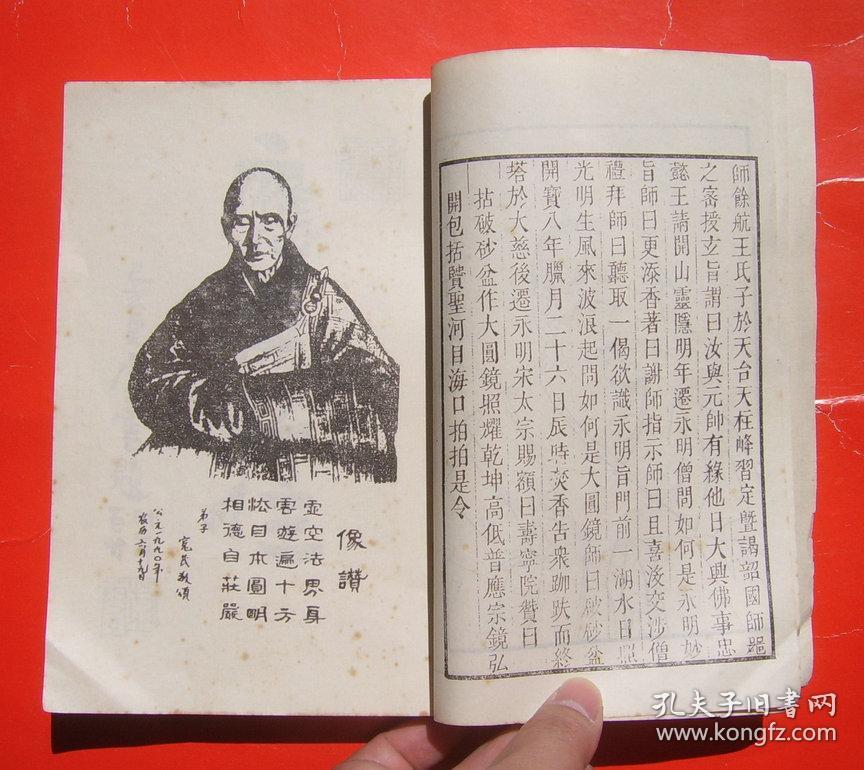 師餘航王氏子於天台天柱峰習定暨謁韶國師器
之密授玄旨謂曰汝與元帥有緣他日大興佛事忠
懿王請開山靈隱明年遷永明僧問如何是永明妙
旨師曰更添香著曰謝師指示師曰且喜沒交涉僧
禮拜師曰聽取一偈欲識永明旨門前一湖水日照
光明生風來波浪起問如何是大圓鏡師曰破砂盆
開寶八年臘月二十六日辰時焚香告衆跏趺而終
塔於大慈後遷永明宋太宗賜額曰壽寧院贊曰
拈破砂盆作大圓鏡照耀乾坤高低普應宗鏡弘
開包括賢聖河目海口拍拍是令
像讚
虛空法界身
雲遊遍十方
淞目本圓明
相德自莊嚴
弟子
寬民敬頌
公元一九九〇年
农历六月十九日
孔夫子旧书网
www.kongfz.com